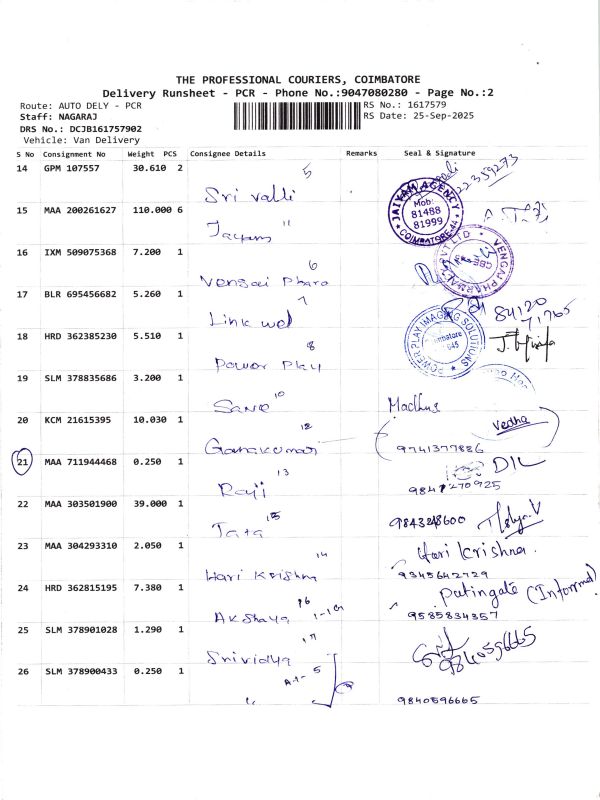 THE PROFESSIONAL COURIERS, COIMBATORE
Delivery Runsheet - PCR - Phone No.:9047080280 - Page No.:2
Route: AUTO DELY - PCR RS No.: 1617579
Staff: NAGARAJ RS Date: 25-Sep-2025
DRS No.: DCJB161757902
Vehicle: Van Delivery
S No Consignment No Weight PCS Consignee Details Remarks Seal & Signature
14 GPM 107557 30.610 2 5
Sri valli
15 MAA 200261627 110.000 6 11
JAIYAM AGENCY Mob: 81488 81999 COIMBATORE-44
16 IXM 509075368 7.200 1 6
VENGAI PHARMA PVT LTD CBE
17 BLR 695456682 5.260 1 7
Link wel 84120
71765
18 HRD 362385230 5.510 1 8
Power Play POWER PLAY IMAGING SOLUTIONS
19 SLM 378835686 3.200 1 10
Madhus
20 KCM 21615395 10.030 1 12
Vedha
9741377886
21 MAA 711944468 0.250 1 13
Raji 9841270925
22 MAA 303501900 39.000 1 15
Tata
23 MAA 304293310 2.050 1 14
Hari Krishna.
Hari Krishna 9345642729
24 HRD 362815195 7.380 1 16
Akshaya 9585834357
25 SLM 378901028 1.290 1 17
Srividya 9840596665
26 SLM 378900433 0.250 1 5
9840596665